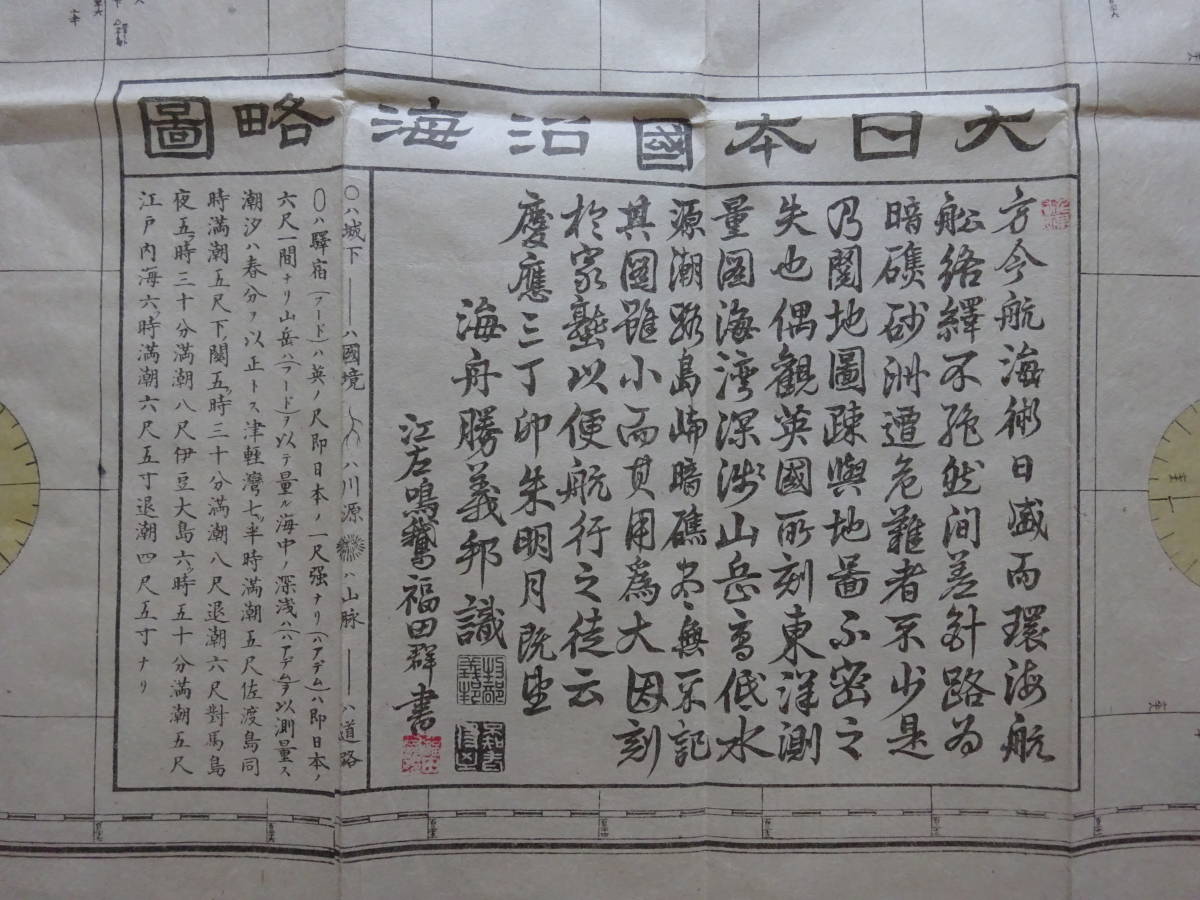 大日本國沿海略圖
方今航海術日盛而環海航
舩絡繹不絶然間差針路為
暗礁砂洲遭危難者不少是
乃閲地圖疎與地啚不密之
失也偶觀英國所刻東洋測
量圖海湾深浅山岳高低水
源潮路島嶼暗礁尽無不記
其圖雖小而其用為大因刻
於家塾以便航行之徒云
慶應三丁卯朱明月既望
海舟勝義邦識
江左鳴鵞福田群書
○ハ城下 ──ハ國境 ハ川源 ハ山脉 ──ハ道路
〇ハ驛宿(フード)ハ英ノ尺即日本ノ一尺强ナリ(ハアデム)ハ即日本ノ
六尺一間ナリ山岳ハ(フード)ヲ以テ量ル海中ノ深浅ハ(ハアデム)ヲ以測量ス
潮汐ハ春分ヲ以正トス津軽灣七ツ半時満潮五尺佐渡島同
時満潮五尺下ノ關五ツ時三十分満潮八尺退潮六尺對馬島
夜五ツ時三十分満潮八尺伊豆大島六ツ時五十分満潮五尺
江戸内海六ツ時満潮六尺五寸退潮四尺五寸ナリ